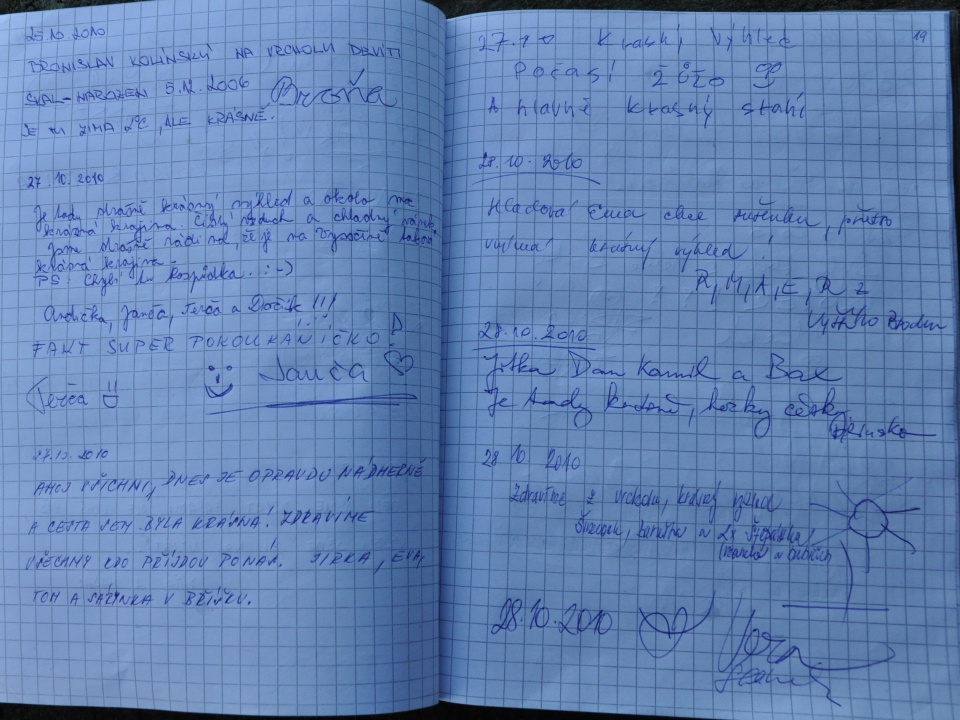 25.10 2010
BRONISLAV KOLÍNSKÝ NA VRCHOLU DEVÍTI
SKAL-NAROZEN 5.12.2006 Broňa
JE TU ZIMA 2°C, ALE KRÁSNĚ.
27.10.2010
Je tady strašně krásný výhled a okolo má
krásná krajina. Čistý vzduch a chladný
Jsem strašně rád že je na Vysočině taková
krásná krajina.
PS: Chybí tu Rozpidka. :-)
Ondička, Janča, Terča a Dočik !!!
FAKT SUPER POKOUKÁNÍČKO!
Terča Janča
27.10.2010
AHOJ VŠICHNI, DNES JE OPRAVDU NÁDHERNĚ
A CESTA SEM BYLA KRÁSNÁ! ZDRAVÍME
VŠECHNY KDO PŘIJDOU PO NÁS. JIRKA, EVA,
TOM A SÁRINKA V BŘÍŠKU.
19
27.10 Krásný výhled
Počasí žůžo
A hlavně krásný
28.10.2010
Hladová Ema chce přesto
vnímá krásný výhled!
R, M, A, E, R z
Brodu
28.10.2010
Jitka Dan Kamil a Bax
Je tady krásně, hezky česky
28 10 2010
Zdravíme z vrcholu, krásný výhled
a 2x Štěpánka
28.10.2010
Věra